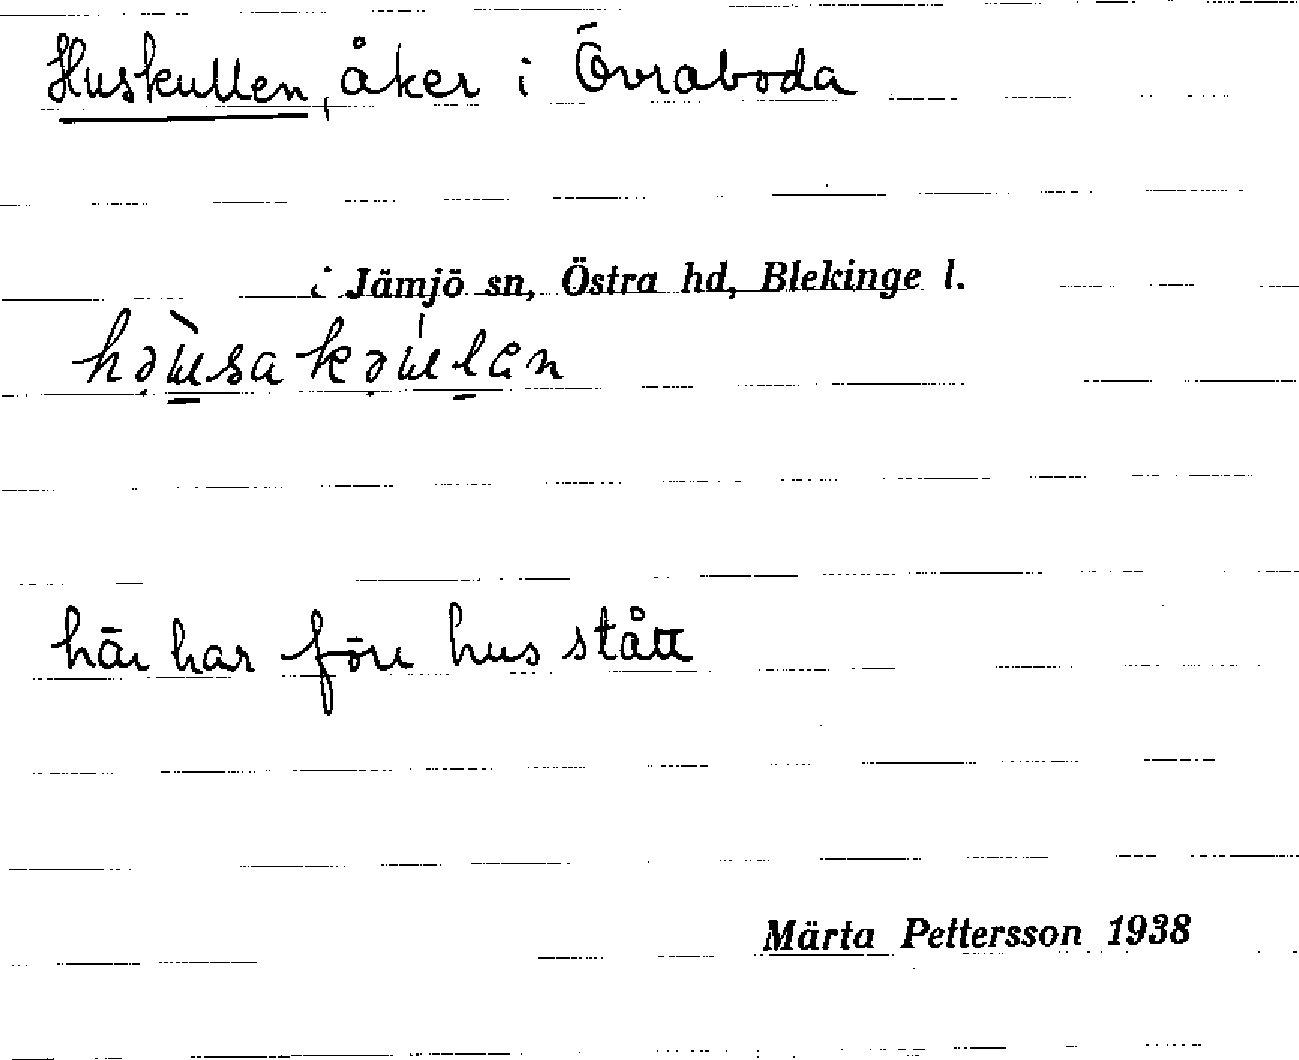 Huskullen, åker i Övraboda
i Jämjö sn, Östra hd, Blekinge l.
här har förr hus stått
Märta Pettersson 1938